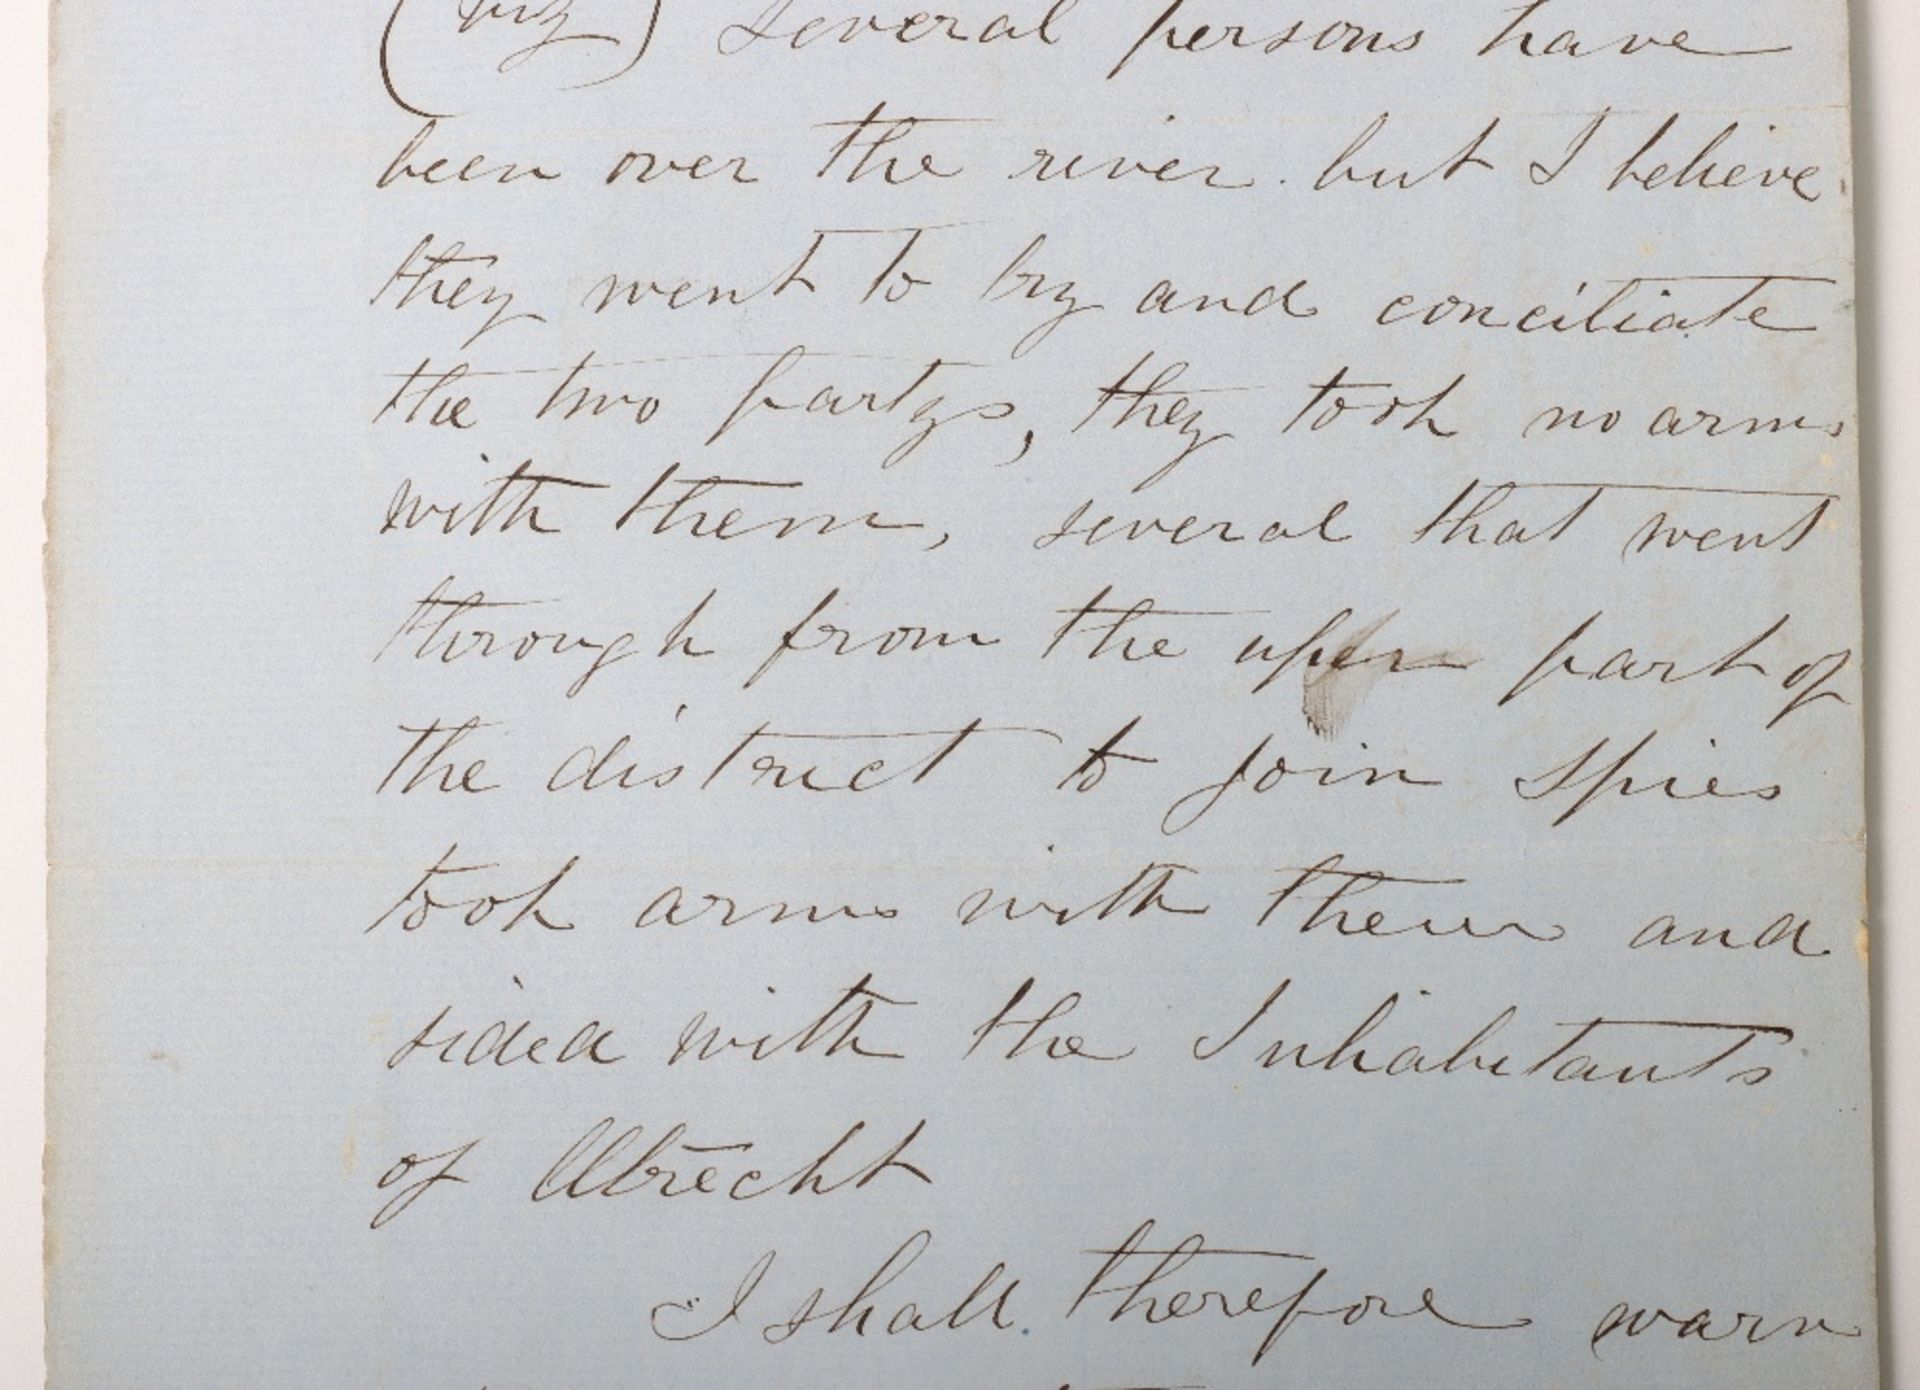 (viz) several persons have
been over the river but I believe
they went to try and conciliate
the two partys, they took no arms
with them, several that went
through from the upper part of
the district to join Spies
took arms with them and
sided with the Inhabitants
of Utrecht
I shall therefore warn